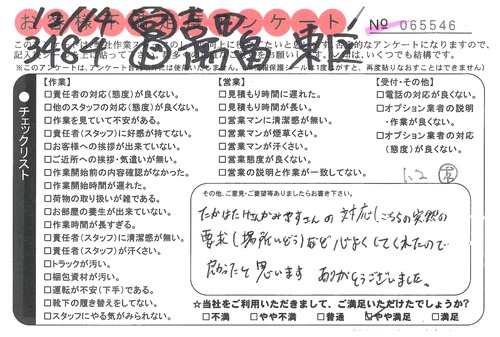 お客様 アンケート
12/14
№ 065546
【作業】
□責任者の対応(態度)が良くない。
□他のスタッフの対応(態度)が良くない。
□作業を見ていて不安がある。
□責任者(スタッフ)に好感が持てない。
□お客様への挨拶が出来ていない。
□ご近所への挨拶・気遣いが無い。
□作業開始前の内容確認がなかった。
□作業開始時間が遅れた。
□荷物の取り扱いが雑である。
□お部屋の養生が出来ていない。
□作業時間が長すぎる。
□責任者(スタッフ)に清潔感が無い。
□責任者(スタッフ)が汗くさい。
□トラックが汚い。
□梱包資材が汚い。
□運転が不安(下手)である。
□靴下の履き替えをしてない。
□スタッフにやる気がみられない。
【営業】
□見積もり時間に遅れた。
□見積もり時間が長い。
□営業マンに清潔感が無い。
□営業マンが煙草くさい。
□営業マンが汗くさい。
□営業態度が良くない。
□営業の説明と作業が一致してない。
【受付・その他】
□電話の対応が良くない。
□オプション業者の説明
・作業が良くない。
□オプション業者の対応
(態度)が良くない。
チェックリスト
その他、ご意見・ご要望等ありましたらお書き下さい。
の対応、こちらの突然の
要求(場所いどう)など 心よくしてくれたので
良かったと思います ありがとうございました。
☆当社をご利用いただきまして、ご満足いただけたでしょうか?
□不満 □やや不満 □普通 □やや満足 □満足